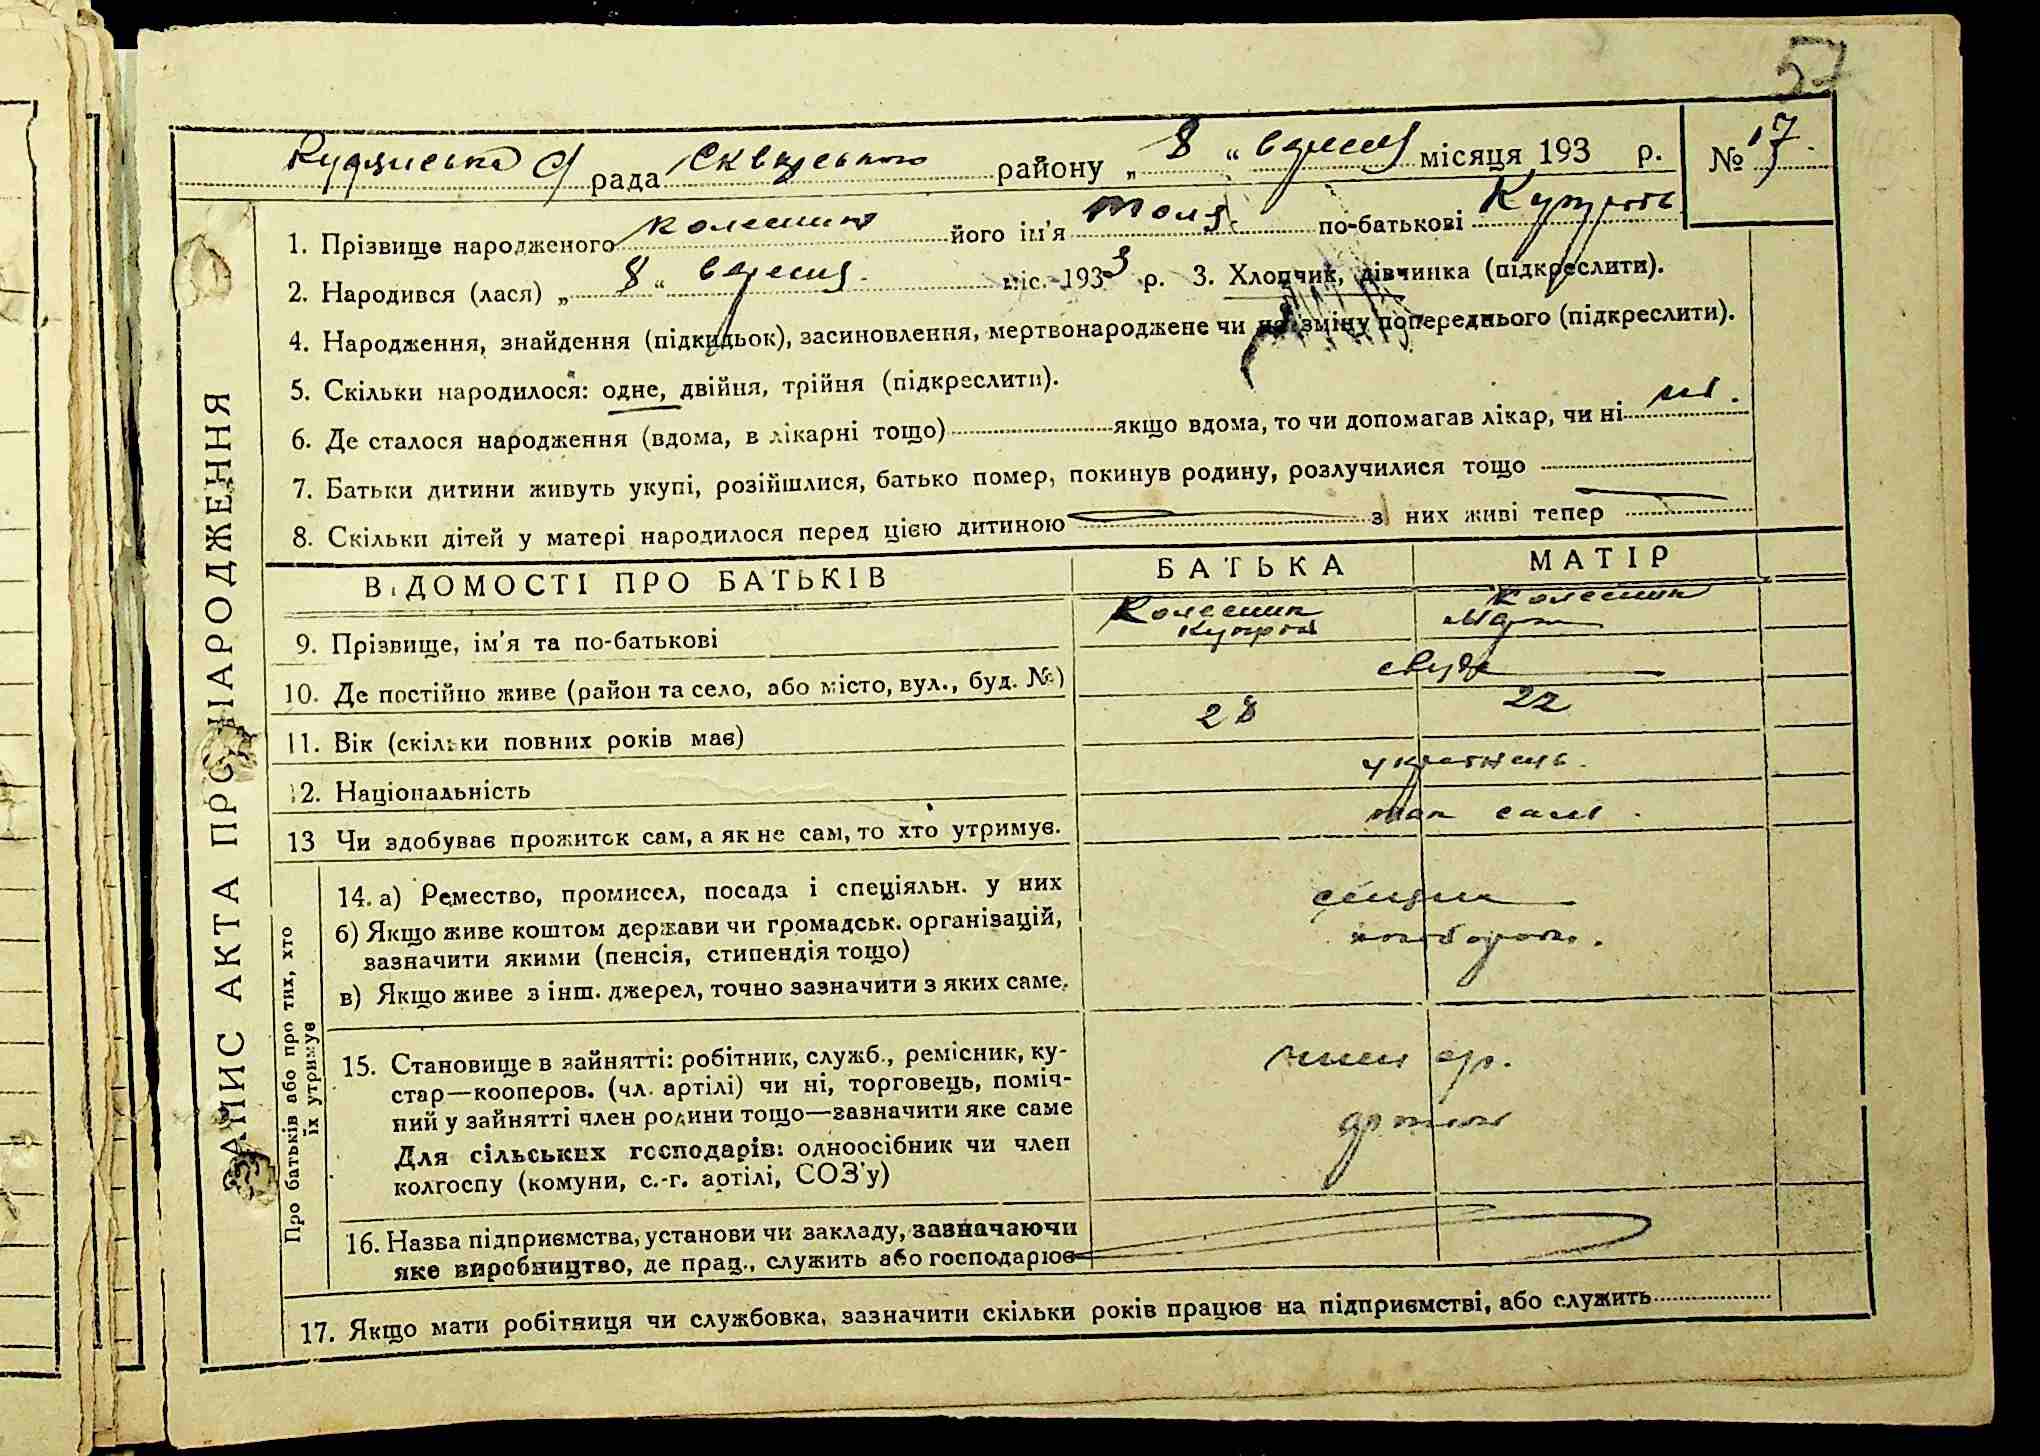 57
сј рада Сквирського району „ 8 “ вересня місяця 193 р. № 17
1. Прізвище народженого Колесник його ім'я Толя по-батькові
2. Народився (лася) „ 8 “ вересня міс. 1933 р. 3. Хлопчик, дівчинка (підкреслити).
4. Народження, знайдення (підкидьок), засиновлення, мертвонароджене чи на зміну попереднього (підкреслити).
5. Скільки народилося: одне, двійня, трійня (підкреслити).
6. Де сталося народження (вдома, в лікарні тощо) якщо вдома, то чи допомагав лікар, чи ні ні.
7. Батьки дитини живуть укупі, розійшлися, батько помер, покинув родину, розлучилися тощо
8. Скільки дітей у матері народилося перед цією дитиною з них живі тепер
ЗАПИС АКТА ПРО НАРОДЖЕННЯ
ВІДОМОСТІ ПРО БАТЬКІВ БАТЬКА МАТІР
Колесник Колесник
9. Прізвище, ім'я та по-батькові
10. Де постійно живе (район та село, або місто, вул., буд. №)
11. Вік (скільки повних років має) 28 22
12. Національність
13 Чи здобуває прожиток сам, а як не сам, то хто утримує. сам
Про батьків або про тих, хто їх утримує
14. а) Ремество, промисел, посада і спеціяльн. у них
б) Якщо живе коштом держави чи громадськ. організацій,
зазначити якими (пенсія, стипендія тощо)
в) Якщо живе з інш. джерел, точно зазначити з яких саме.
15. Становище в зайнятті: робітник, служб., ремісник, ку-
стар—кооперов. (чл. артілі) чи ні, торговець, поміч-
ний у зайнятті член родини тощо—зазначити яке саме
Для сільських господарів: одноосібник чи член
колгоспу (комуни, с.-г. артілі, СОЗ'у)
член
16. Назва підприємства, установи чи закладу, зазначаючи
яке виробництво, де прац., служить або господарює
17. Якщо мати робітниця чи службовка, зазначити скільки років працює на підприємстві, або служить